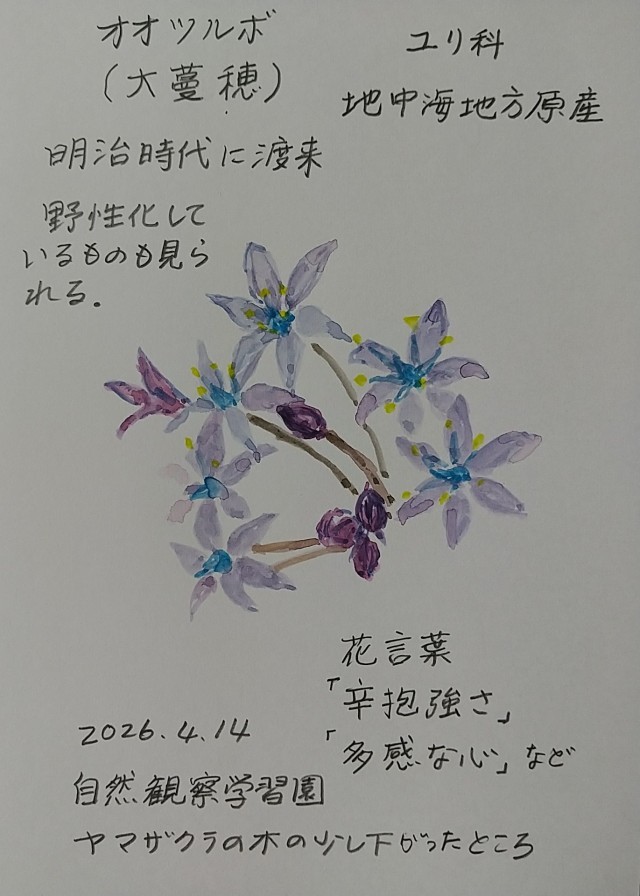 オオツルボ
(大蔓穂)
ユリ科
地中海地方原産
明治時代に渡来
野性化して
いるものも見ら
れる。
花言葉
「辛抱強さ」
「多感な心」など
2026.4.14
自然観察学習園
ヤマザクラの木の少し下がったところ